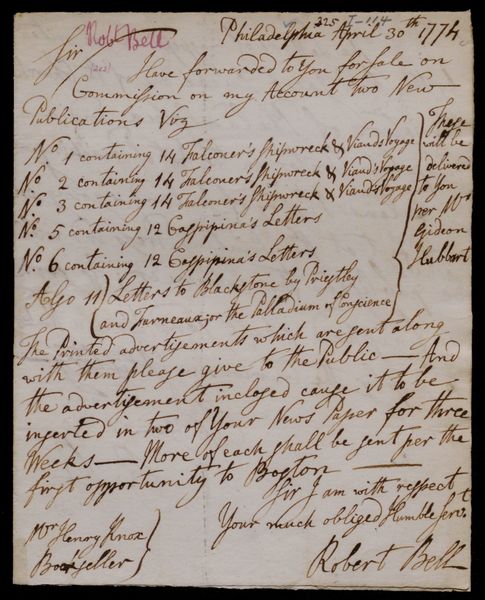 Robt Bell
325 I-114
Philadelphia April 30th 1774
Sir
Have forwarded to You for sale on
Commission on my Account two New
Publications Viz
No. 1 containing 14 Falconer's Shipwreck & Viauds Voyage
No. 2 containing 14 Falconer's Shipwreck & Viauds Voyage
No. 3 containing 14 Falconer's Shipwreck & Viauds Voyage
No. 5 containing 12 Caspipina's Letters
No. 6 containing 12 Caspipina's Letters
Also 11 Letters to Blackstone by Priestley
and Furneaux; or the Palladium of Conscience
These
will be
delivered
to you
per Mr
Gideon
Hubbart
The Printed advertisements which are sent along
with them please give to the Public — And
the advertisement inclosed cause it to be
inserted in two of Your News Paper for three
Weeks — More of each shall be sent per the
first opportunity to Boston —
Sir I am with respect
Your much obliged Humble servt
Robert Bell
Mr Henry Knox
Bookseller